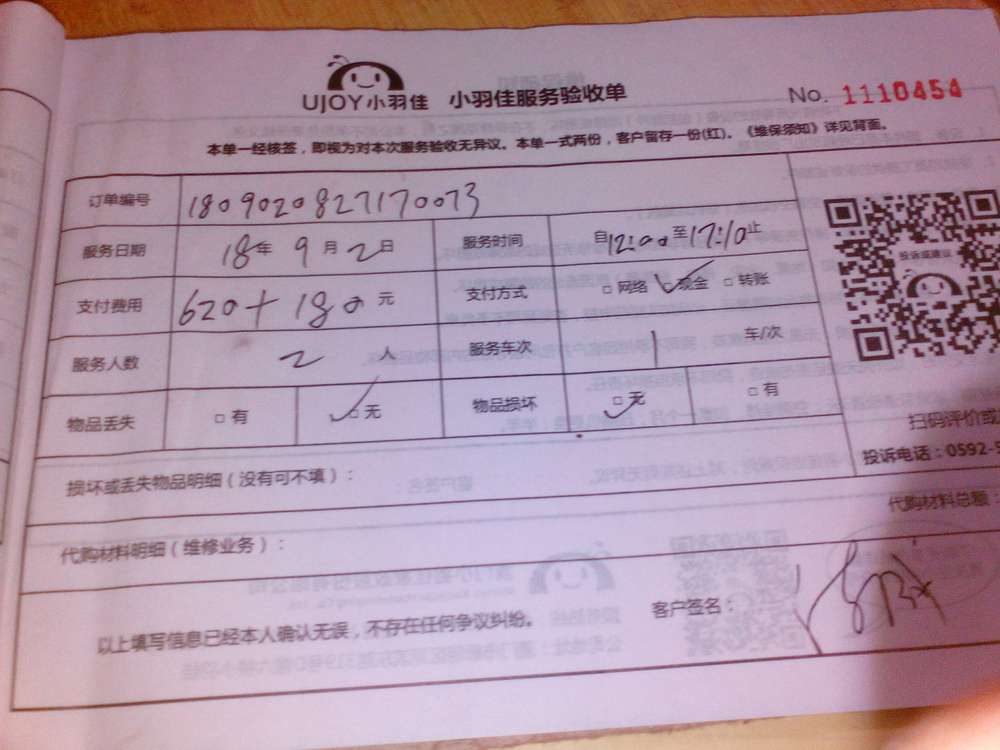 UJOY小羽佳 小羽佳服务验收单 No. 1110454
本单一经核签，即视为对本次服务验收无异议。本单一式两份，客户留存一份(红)。《维保须知》详见背面。
订单编号 1809020827170073
服务日期 18年 9月 2日 服务时间 自12:00至17:10止
支付费用 620+180元 支付方式 □网络 □现金 □转账
服务人数 2人 服务车次 1 车/次
物品丢失 □有 □无 物品损坏 □无 □有
投诉或建议
扫码评价或
投诉电话：0592-
损坏或丢失物品明细（没有可不填）：
代购材料明细（维修业务）： 代购材料总额：
以上填写信息已经本人确认无误，不存在任何争议纠纷。 客户签名：